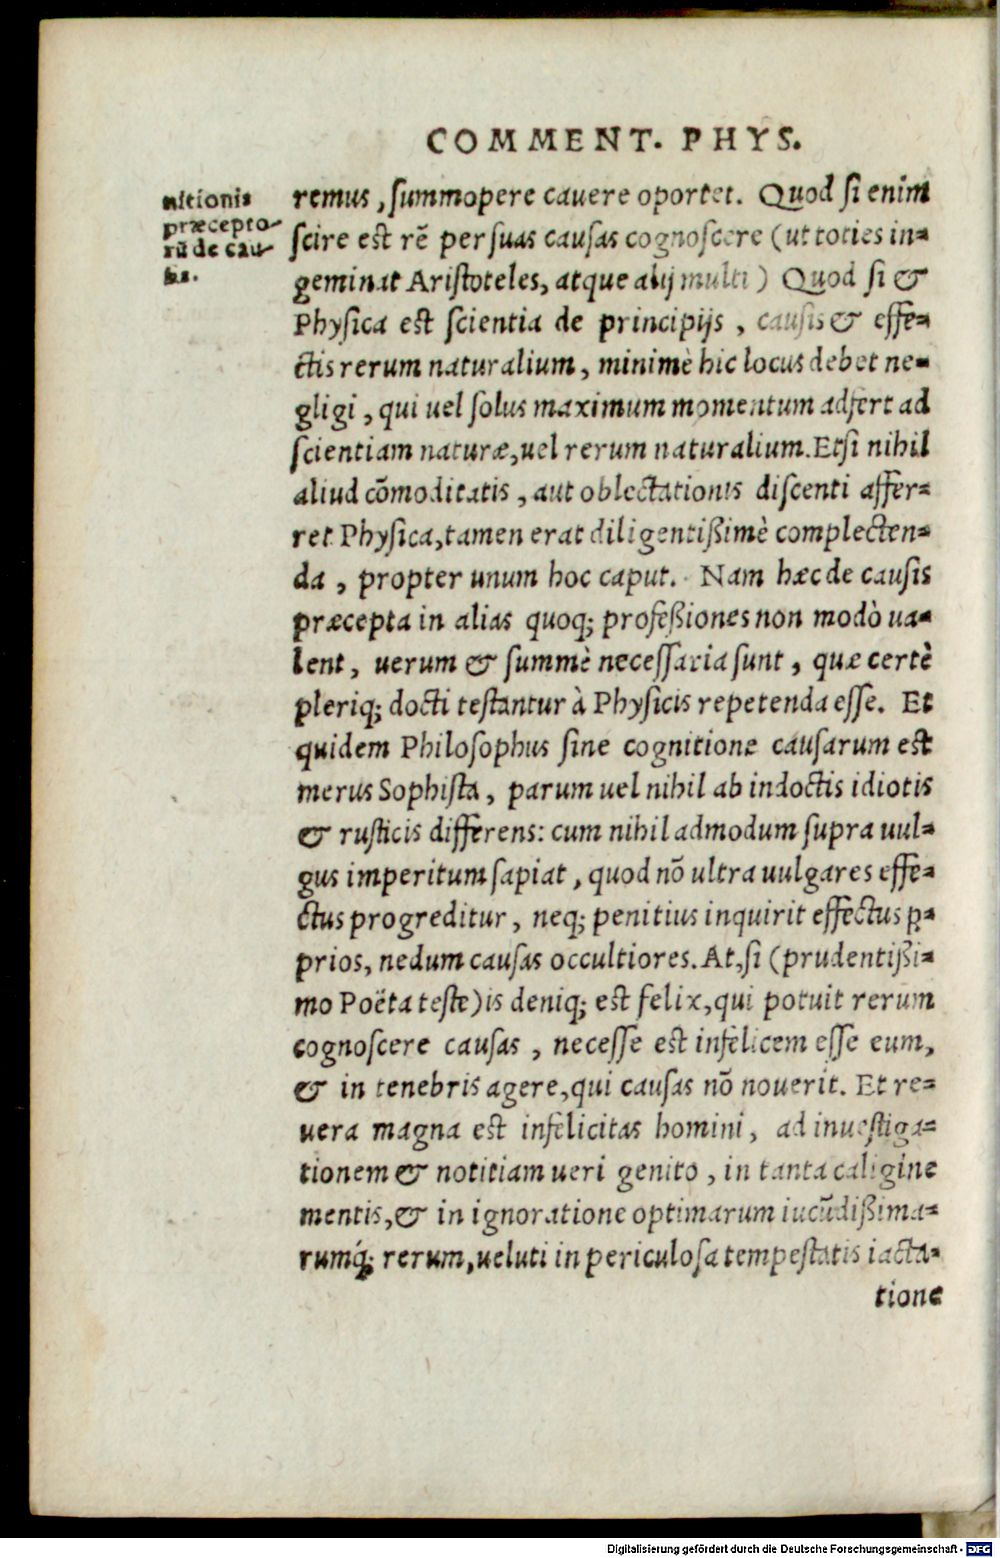 COMMENT. PHYS.
nitionis
præcepto-
rũ de cau-
sis.
remus, ſummopere cauere oportet. Quod ſi enim
ſcire est rẽ per ſuas cauſas cognoſcere (ut toties in-
geminat Ariſtoteles, atque alij multi) Quod ſi &
Phyſica est ſcientia de principijs, cauſis & effe-
ctis rerum naturalium, minimè hic locus debet ne-
gligi, qui uel ſolus maximum momentum adfert ad
ſcientiam naturæ, uel rerum naturalium. Etſi nihil
aliud cõmoditatis, aut oblectationis diſcenti affer-
ret Phyſica, tamen erat diligentißimè complecten-
da, propter unum hoc caput. Nam hæc de cauſis
præcepta in alias quoq; profeßiones non modò ua-
lent, uerum & ſummè neceſſaria ſunt, quæ certè
pleriq; docti teſtantur à Phyſicis repetenda eſſe. Et
quidem Philoſophus ſine cognitione cauſarum est
merus Sophiſta, parum uel nihil ab indoctis idiotis
& ruſticis differens: cum nihil admodum ſupra uul-
gus imperitum ſapiat, quod nõ ultra uulgares effe-
ctus progreditur, neq; penitius inquirit effectus ꝓ-
prios, nedum cauſas occultiores. At, ſi (prudentißi-
mo Poëta teſte) is deniq; est felix, qui potuit rerum
cognoſcere cauſas, neceſſe est infelicem eſſe eum,
& in tenebris agere, qui cauſas nõ nouerit. Et re-
uera magna est infelicitas homini, ad inueſtiga-
tionem & notitiam ueri genito, in tanta caligine
mentis, & in ignoratione optimarum iucũdißima-
rumq́; rerum, ueluti in periculoſa tempeſtatis iacta-
tione
Digitalisierung gefördert durch die Deutsche Forschungsgemeinschaft - DFG